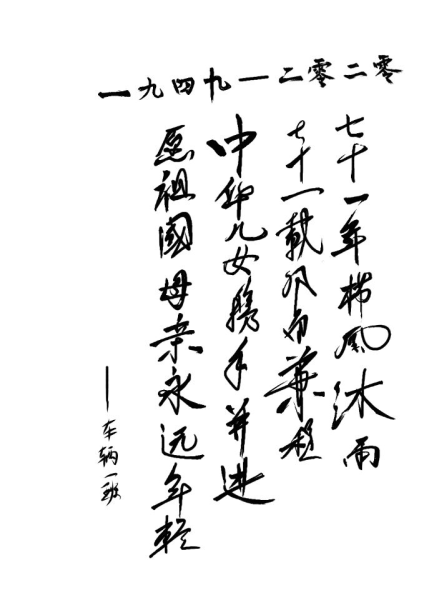 一九四九—二零二零
七十一年栉风沐雨
七十一载风雨兼程
中华儿女携手并进
愿祖國母亲永远年轻
——车辆一班